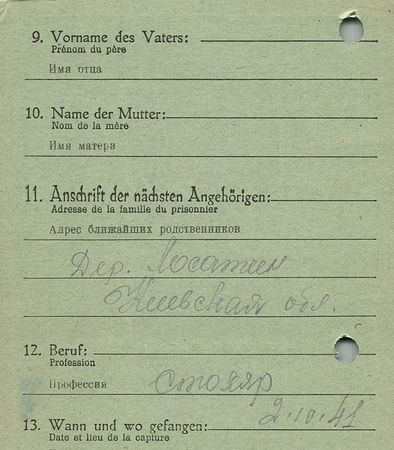 9. Vorname des Vaters:
Prénom du père
Имя отца
10. Name der Mutter:
Nom de la mère
Имя матери
11. Anschrift der nächsten Angehörigen:
Adresse de la famille du prisonnier
Адрес ближайших родственников
Дер.
Киевская обл.
12. Beruf:
Profession
Профессия
столяр
2.10.41
13. Wann und wo gefangen:
Date et lieu de la capture